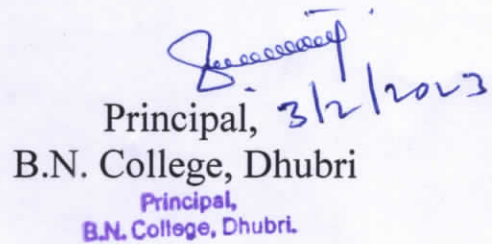 Principal, 3/2/2023
B.N. College, Dhubri
Principal,
B.N. College, Dhubri.